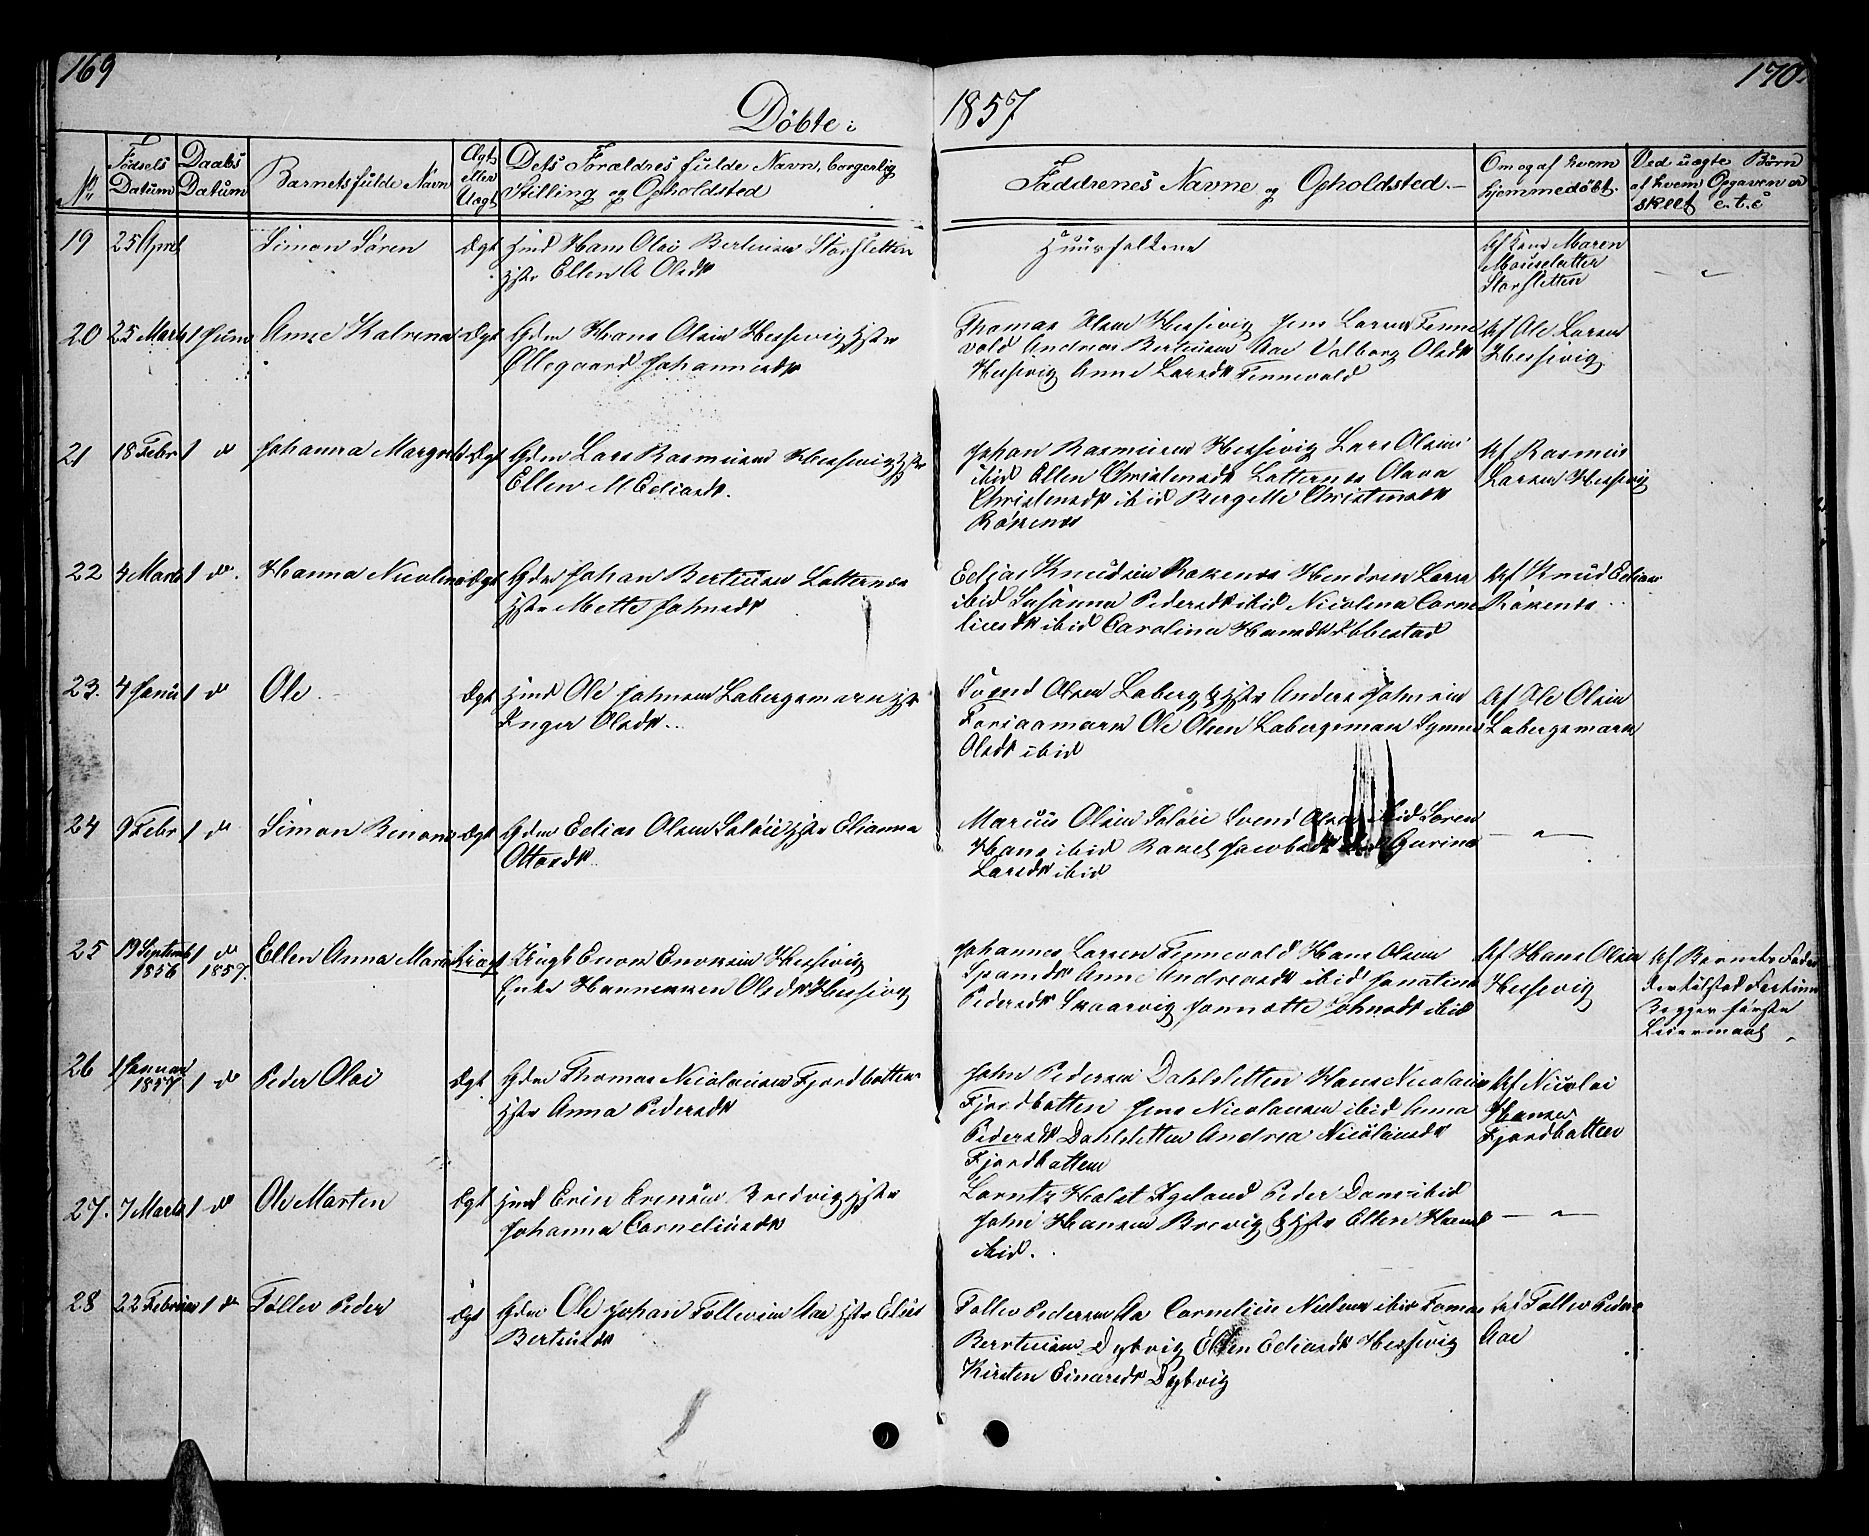 169
170.
Döbte i
1857
No
Fødsels Datum
Daabs Datum
Barnets fulde Navn
Ægt eller Uægt
Dets Forældres fulde Navn, borgerlig Stilling og Opholdsted
Faddrenes Navne og Opholdsted.
Om og af hvem hjemmedøbt.
Ved uægte Børn af hvem Opgaven er skeet e.t.c
19 25 April Simon Sören Ægt Hans Olai Berteusen Storsletten
Ellen A Olsdt
Huusfolkene
Af Maren
Storsletten
20 25 Marts 1 Juni Ane Katrina Ægt Gdm Hans Olsen Hessevig Hstr
Øllegaard Johannesdt
Thomas Olsen Hessevig Jens Larsen Tenne
vold Andreas Berteusen Aae Valborg Olsdt
Hessevig Anne Larsdt Tennevold
Af Ole Larsen
Hessevig
21 18 Febr 1 d Johanna Margret Ægt Gdm Lars Rasmusen Hessevig Hstr
Ellen M Eliasdt.
Johan Rasmusen Hessevig Lars Olsen
ibid Ellen Christensdt Latternes Olava
Christensdt ibid Bergitte Christensdt
Rökenes
Af Rasmus
Larsen Hessevig
22 4 Marts 1 do. Hanna Nicolina Ægt Gdm Johan Berteusen Latternes
Hstr Mette Johnsdt
Elias Knudsen Rökenes Hendren Larsn
ibid Susanna Pedersdt ibid Nicolina Corne
liusdt ibid Carolina Hansdt Ibbestad
Af Knud Elias
Rökenes
23. 4 Janu 1 d Ole Ægt Ole Johnsen Labergsmark Hstr
Inger Olsdt.
Svend Olsen Laberg & Hstr Anders Johnsen
Ole Olsen Labergsmark Synne
Olsdt ibid
Af Ole Olsen
Labergsmark
24 9 Febr 1 d Simon Benoni Ægt Gdm Elias Olsen Hstr Elianna
Ottesdt
Marcus Olsen Svend Olsen ibid Soren
Hans ibid Rakel Jacobsdt ibid Gurina
Larsdt ibid
25 19 Septemb 1856 1 d 1857. Ellen Anna Maria Uægt Enok Enoksen Hessevig
Enke Olsdt Hessevig
Johannes Larsen Tennevold Hans Olsen
Anne Andreasdt ibid Jonatine
Pedersdt Skaarvig Jonnette Johnsdt ibid
Af Hans Olsen
Hessevig
Af Barnets Fader
Begges første
Leiermaal
26 1 Januar 1857 1 d Peder Olai Ægt Gdm Thomas Nicolaisen Fjordbotten
Hstr Anna Pedersdt
John Pedersen Dahlsletten Hans Nicolais
Fjordbotten Jens Nicolausen ibid Anna
Pedersdt Dahlsletten Andrea Nicolaisdt
Fjordbotten
Af Nicolai
Hansen
Fjordbotten
27. 7 Marts 1 d Ole Marten Ægt Bredvig Hstr
Johanna Corneliusdt
Lorntz Holst Peder Dons ibid
John Hansen Brevig & Hstr Ellen Hansd
ibid.
28 22 Februar 1 d Tollev Peder Ægt Gdm Ole Johan Tollevsen Aae Hstr Elen
Berteusdt
Tollev Pedersen Aa Cornelius Nielsen ibid Tomas
Berteusen Dybvig Ellen Eliasdt Hessevig
Kirsten Einarsdt Dybvig
Af Tollev Peders
Aae